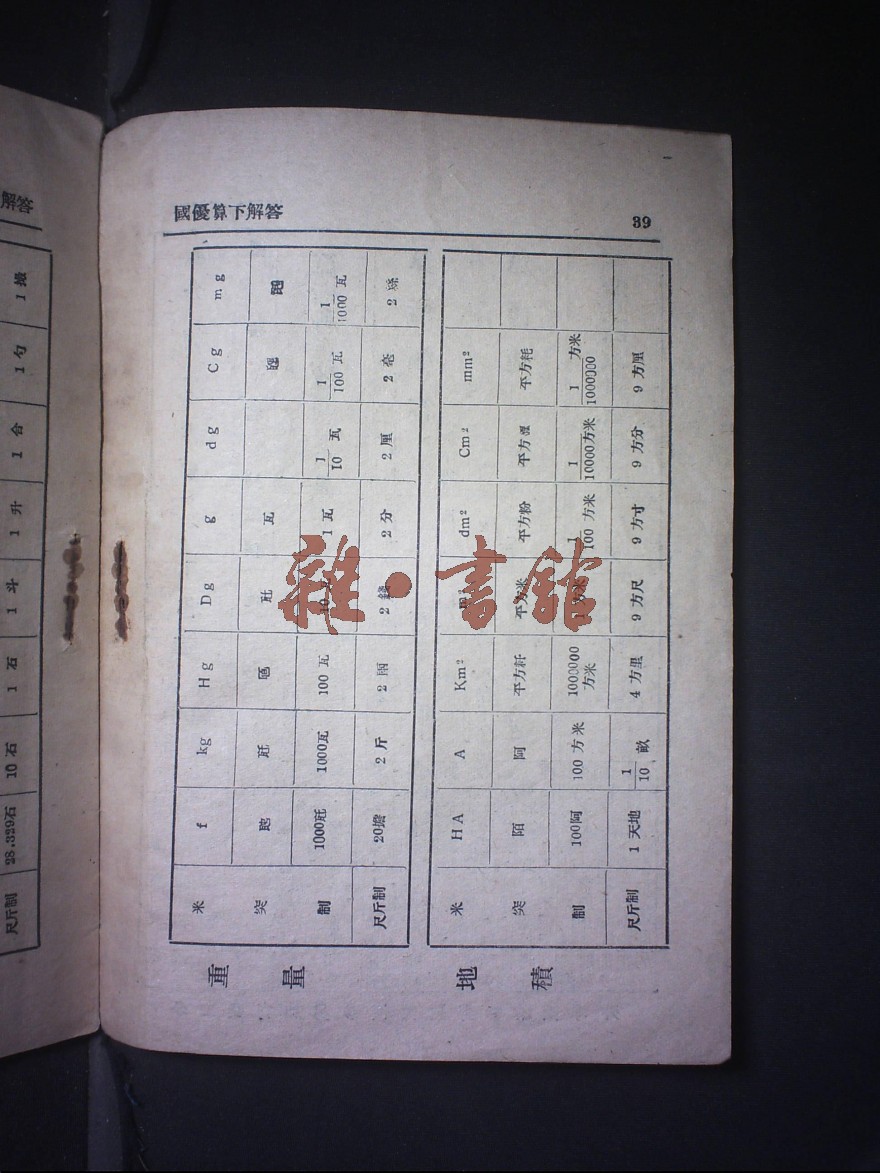 解答
尺斤制 28.329石 10石 1石 1斗 1升 1合 1勺 1撮
國優算下解答 39
重量
米 f kg Hg Dg g dg Cg mg
突 瓩 瓸 瓧 瓦
制 1000瓩 1000瓦 100瓦 10瓦 1瓦 1/10瓦 1/100瓦 1/1000瓦
尺斤制 20擔 2斤 2兩 2錢 2分 2厘 2毫 2絲
地積
米 HA A Km² m² dm² Cm² mm²
突 陌 阿 平方粁 平方米 平方粉 平方糎 平方粍
制 100阿 100方米 1000000方米 1方米 1/100方米 1/10000方米 1/1000000方米
尺斤制 1天地 1/10畝 4方里 9方尺 9方寸 9方分 9方厘
雜·書館